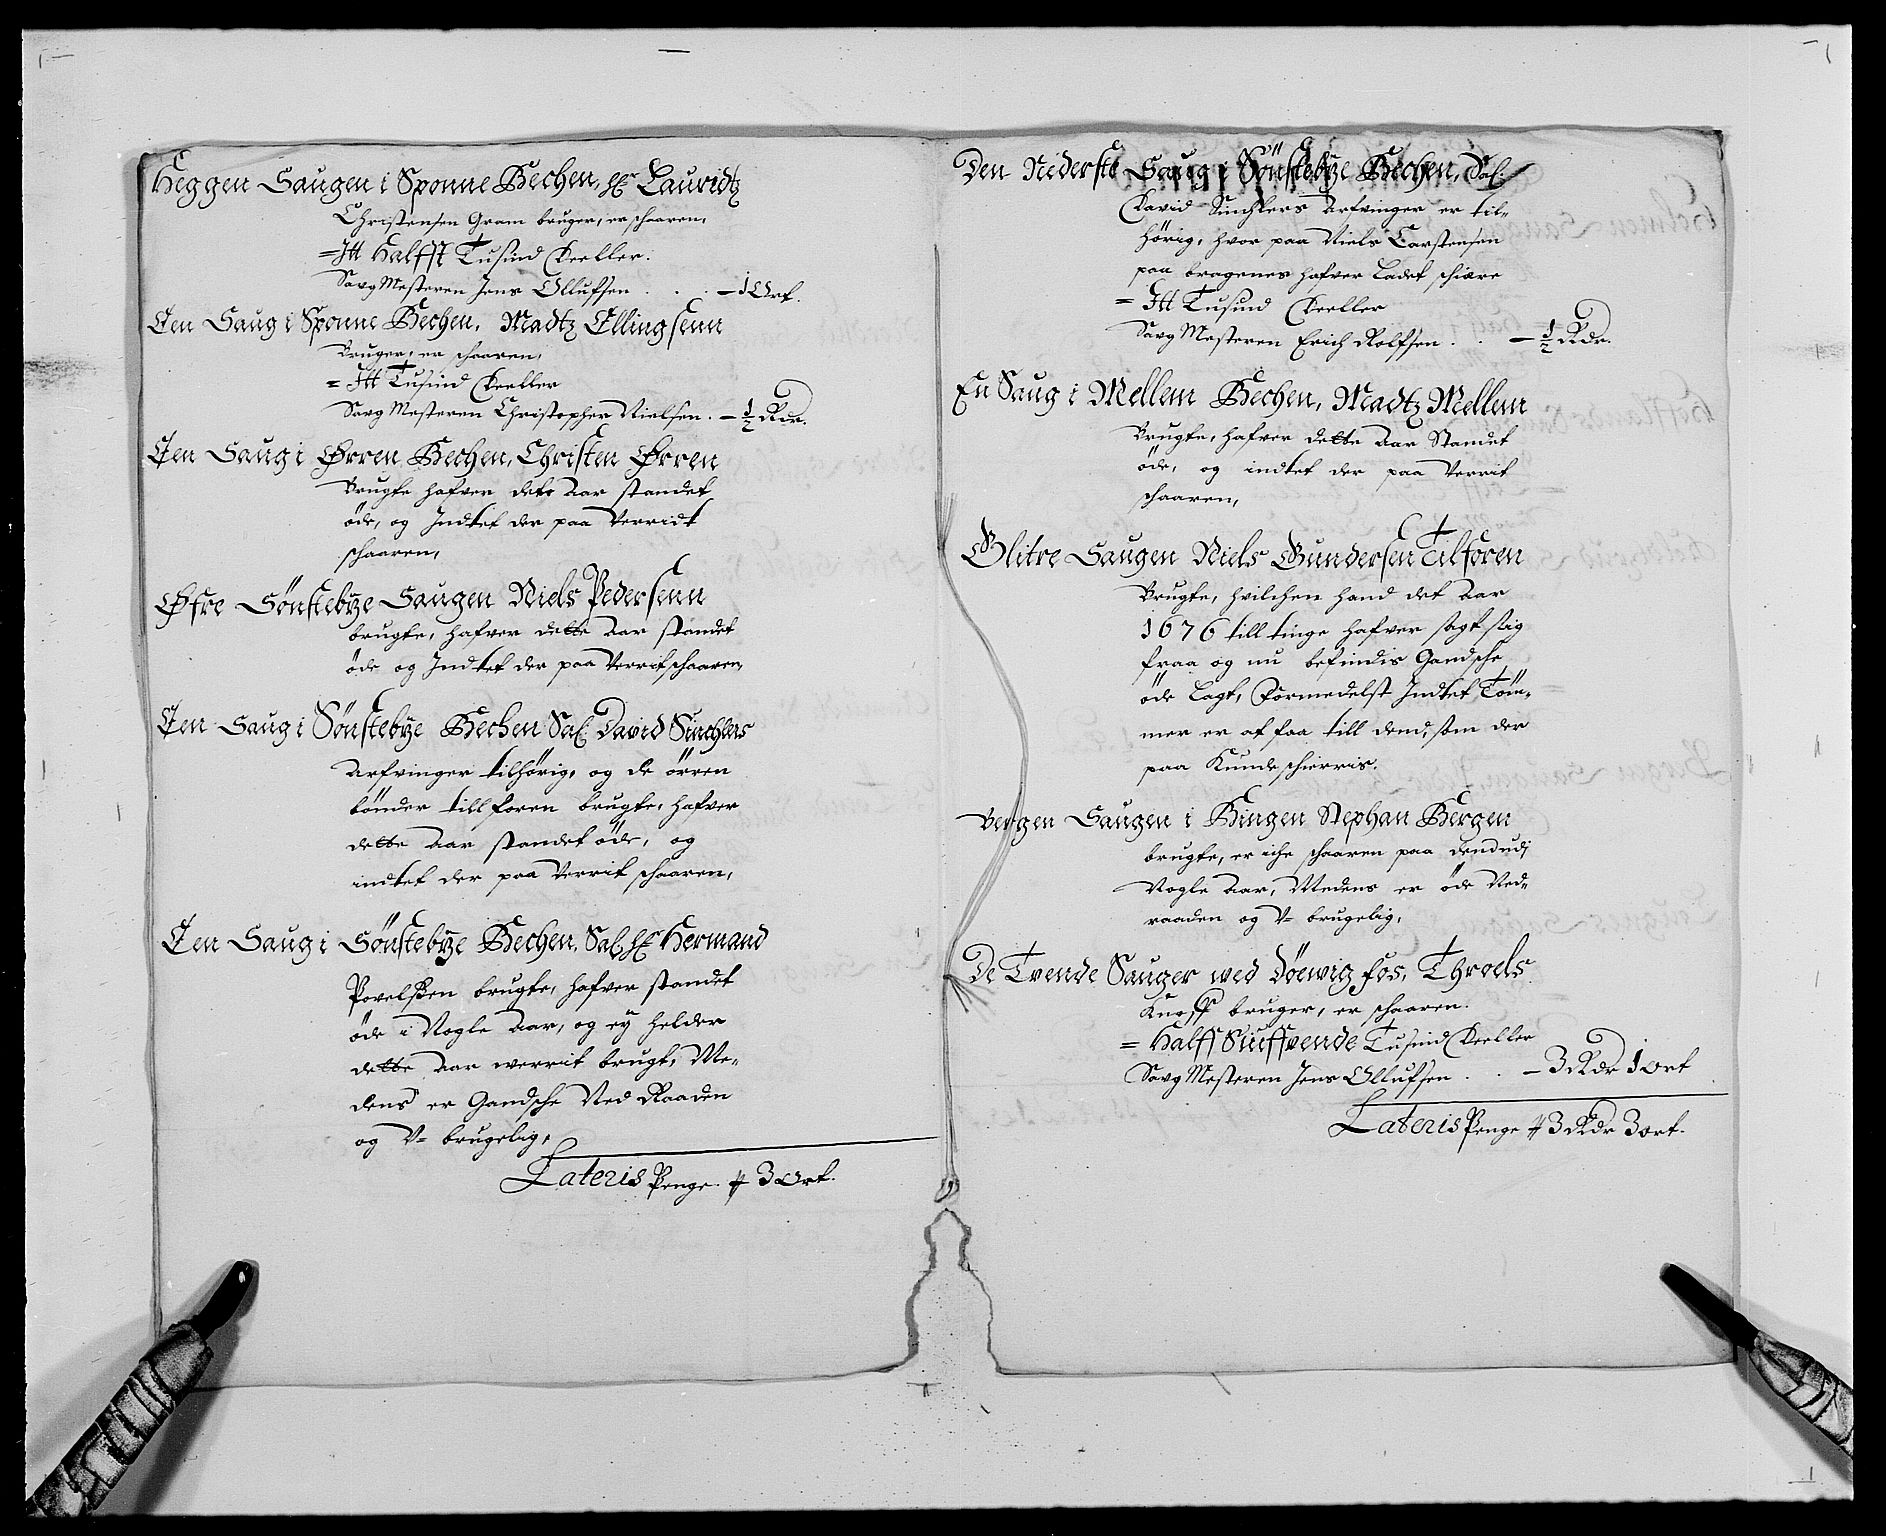 Heggen Saugen i Sponne Bechen, Hr Lauridtz
Christensen Gram bruger, er schaaren,
= Itt Halfft Tusind Deeller.
Saug Mesteren Jens Ollufsen . . . — 1 Ort.
Een Saug i Sponne Bechen, Madtz Ellingsenn
Bruger, er schaaren,
= Itt Tusind Deeller
Saug Mesteren Christopher Nielsen. — ½ Rdr.
Een Saug i Ørren Bechen, Christen Ørren
Brugte hafver dete Aar standet
öde, og Indtet der paa Verridt
schaaren,
Øfre Sönstebÿe Saugen Niels Pedersenn
brugte, hafver dette Aar standet
öde og Indtet der paa Verrit schaaren,
Een Saug i Sönstebÿe Bechen Sal. David Sinchlers
Arfvinger tilhörig, og de örren
bönder till foren brugte, hafver
dette Aar standet öde, og
indtet der paa Verrit schaaren,
Een Saug i Sönstebÿe Bechen, Sal. Hr Hermand
Povelsen brugte, hafver standet
öde i Nogle Aar, og eÿ helder
dette Aar werrit brugt, Me-
dens er Gandsche Ned Raaden
og V= brugelig,
Lateris Penge 3 Ort.
Den Niderste Saug i Sönstebÿe Bechen, Sal.
David Sinchlers Arfvinger er til-
hörig, hvor paa Niels Carstensen
paa bragenes hafver Ladet schiære
= Itt Tusind Deeller
Saug Mesteren Erich Rolfsen . . — ½ Rdr.
En Saug i Mellem Bechen, Madtz Mellem
Brugte, hafver dette Aar Standet
öde, og indtet der paa Verrit
schaaren,
Glitre Saugen Niels Gundersen Tilforen
Brugte, hvilchen hand det Aar
1676 till tinge hafver sagt sig
fraa og nu befindis Gandsche
öde Lagt, Formedelst Indtet Töm-
mer er at faa till dend, som der
paa Kunde schierris.
Bergen Saugen i Bingen Stephan Bergen
brugte, er iche schaaren paa
Nogle Aar, Medens er öde Ned-
raaden og V= brugelig,
De Tvende Sauger wed Döewig fos, Throels
Knoff bruger, er schaaren.
= Half Siuffvende Tusind Deeller
Saug Mesteren Jens Ollufsen . . — 3 Rdr 1 ort
Lateris Penge 3 Rdr 3 ort.